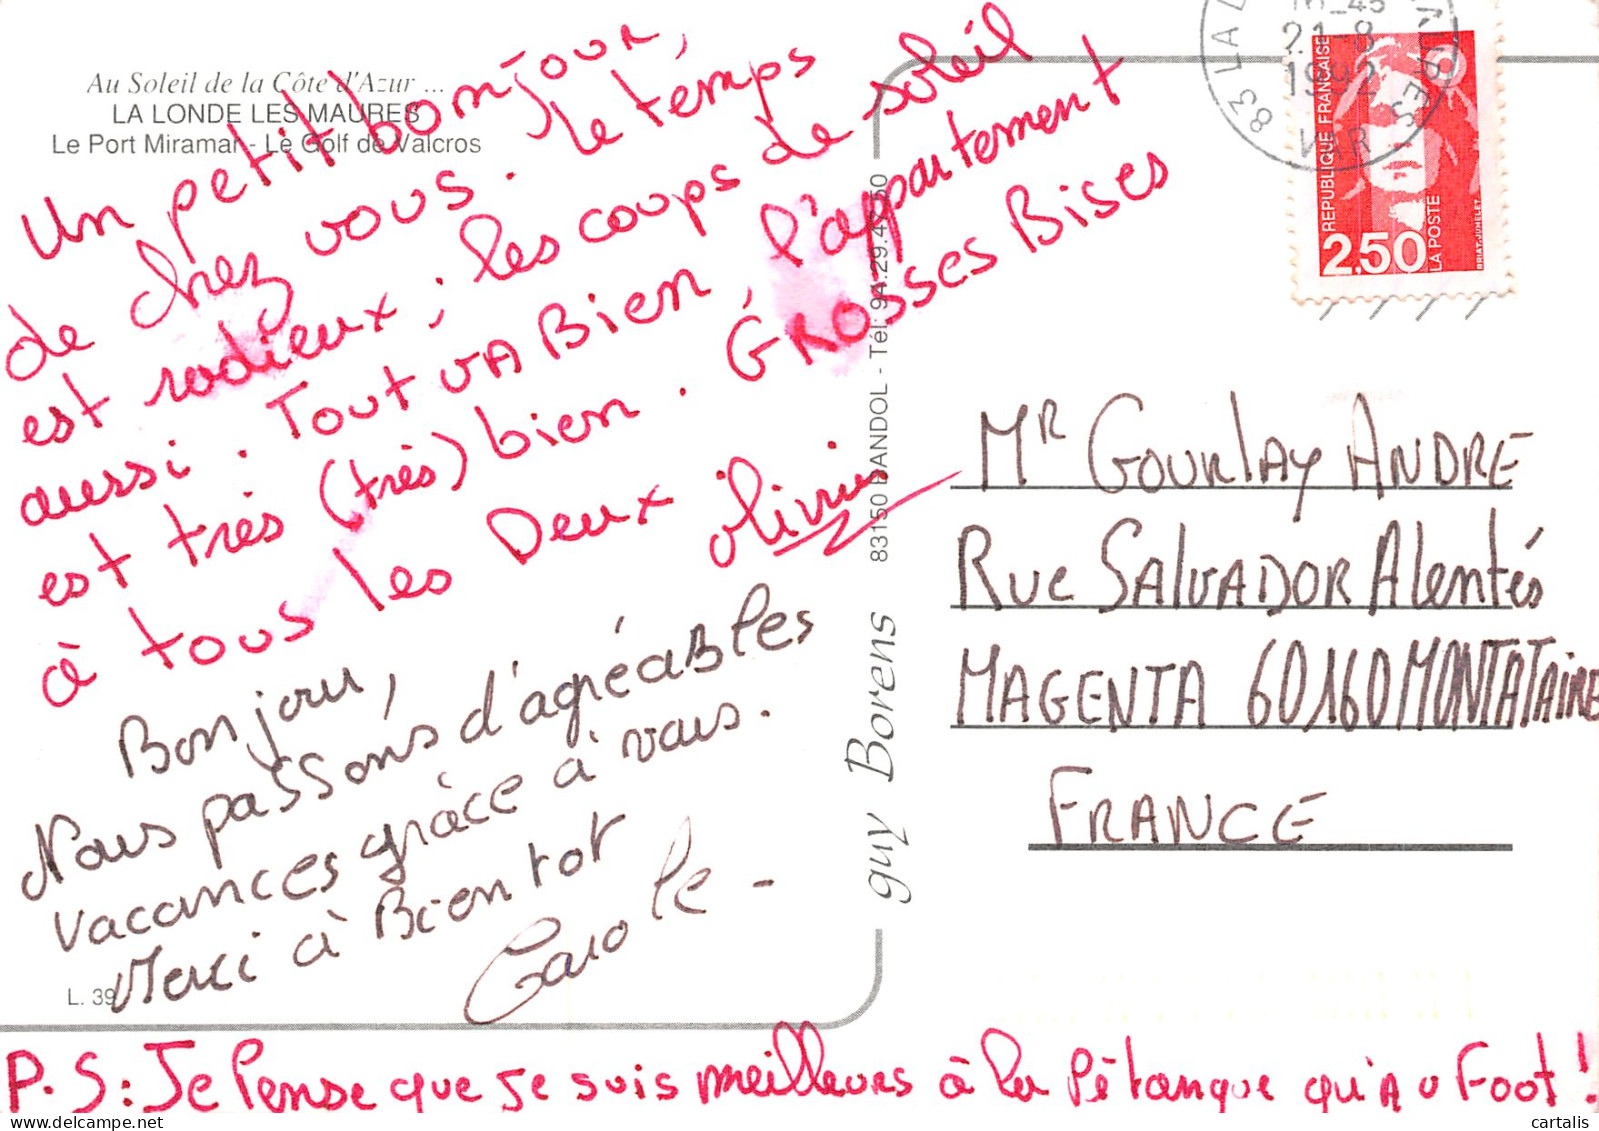 Au Soleil de la Côte d'Azur ...
LA LONDE LES MAURES
Le Port Miramar - Le Golf de Valcros
Un petit bonjour
de chez vous. le temps
est radieux ; les coups de soleil
aussi. Tout VA Bien, l'appartement
est très (très) bien. GROSSES Bises
à tous les Deux
Bonjour,
Nous passons d'agréables
vacances grâce à vous.
Merci à Bientot
Carole -
L. 39
P.S: Je Pense que je suis meilleurs à la Pétanque qu'Au Foot!
guy Borens 83150 BANDOL - Tél: 94.29.
16-45
21-8
1992
83 LA L
VAR
REPUBLIQUE FRANÇAISE
2,50
LA POSTE
BRIAT-JUMELET
Mr GOURLAY ANDRE
RUE SALVADOR Alentés
MAGENTA 60160 MONTATAIRE
FRANCE
cartalis